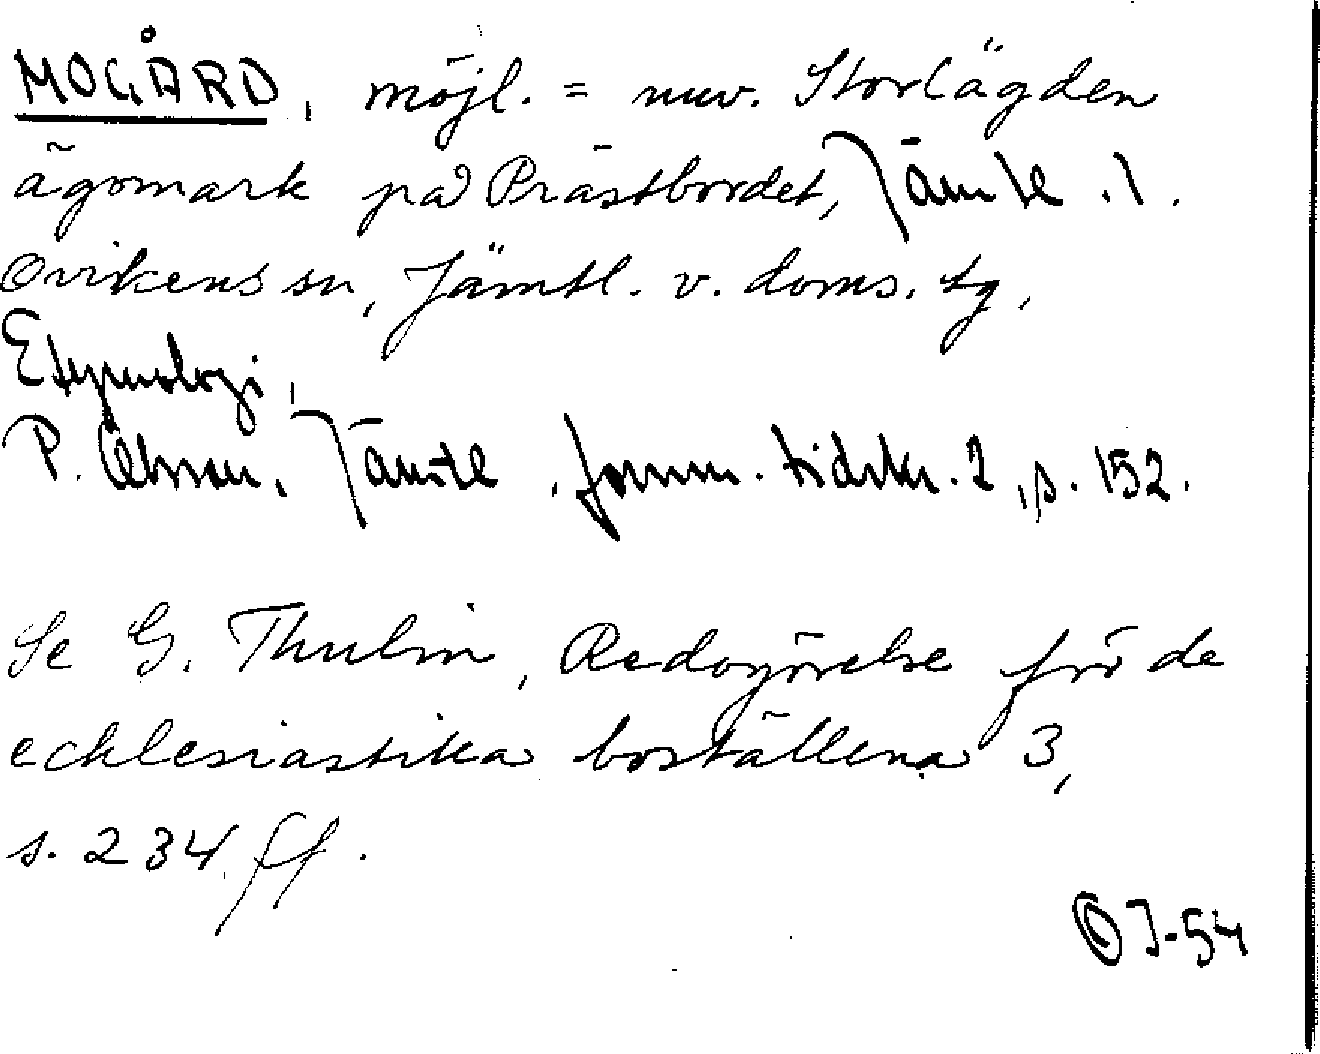 MOGÅRD, möjl. = nuv. Storlägden
ägomark på Prästbordet, Jämtl.l.
Ovikens sn, Jämtl. v. doms. tg,
Etymologi,
P. Olsson, Jämtl. fornm. tidskr. 2, s. 152.
Se G. Thulin, Redogörelse för de
ecklesiastika boställena 3,
s. 234 ff.
OJ-54